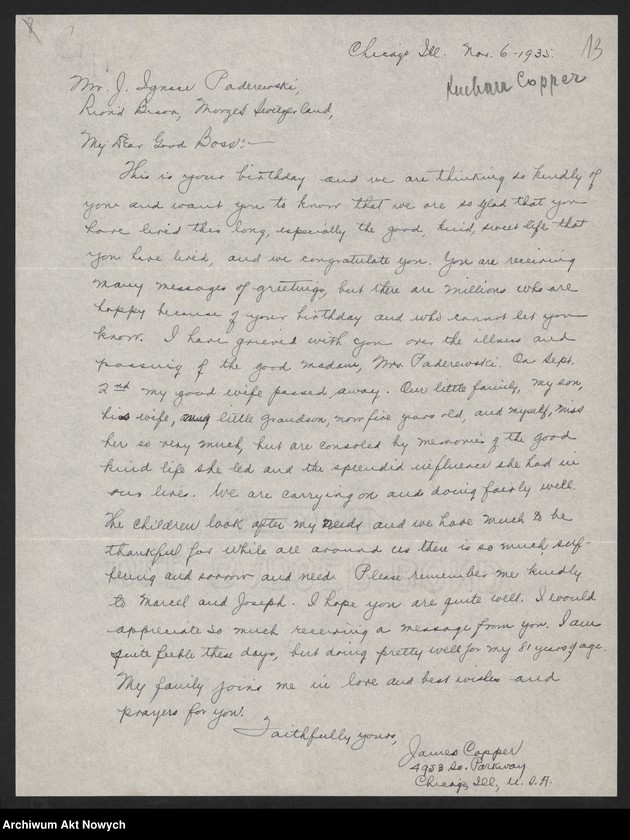 Chicago Ill. Nov. 6-1935.
13
Kucharz Copper
Mr. J. Ignace Paderewski,
Riond Bosson, Morges Switzerland,
My Dear Good Boss:—
This is your birthday and we are thinking so kindly of
you and want you to know that we are so glad that you
have lived this long, especially the good, kind, sweet life that
you have lived, and we congratulate you. You are receiving
many messages of greetings, but there are millions who are
happy because of your birthday and who cannot let you
know. I have grieved with you over the illness and
passing of the good madam, Mrs. Paderewski. On Sept.
2nd my good wife passed away. Our little family, my son,
his wife, my little grandson, now five years old, and myself, miss
her so very much, but are consoled by memories of the good
kind life she led and the splendid influence she had in
our lives. We are carrying on and doing fairly well.
The children look after my needs and we have much to be
thankful for while all around us there is so much suf-
fering and sorrow and need. Please remember me kindly
to Marcel and Joseph. I hope you are quite well. I would
appreciate so much receiving a message from you. I am
quite feeble these days, but doing pretty well for my 81 years of age.
My family joins me in love and best wishes and
prayers for you.
Faithfully yours,
James Copper
4953 So. Parkway
Chicago, Ill., U. S. A.
Archiwum Akt Nowych